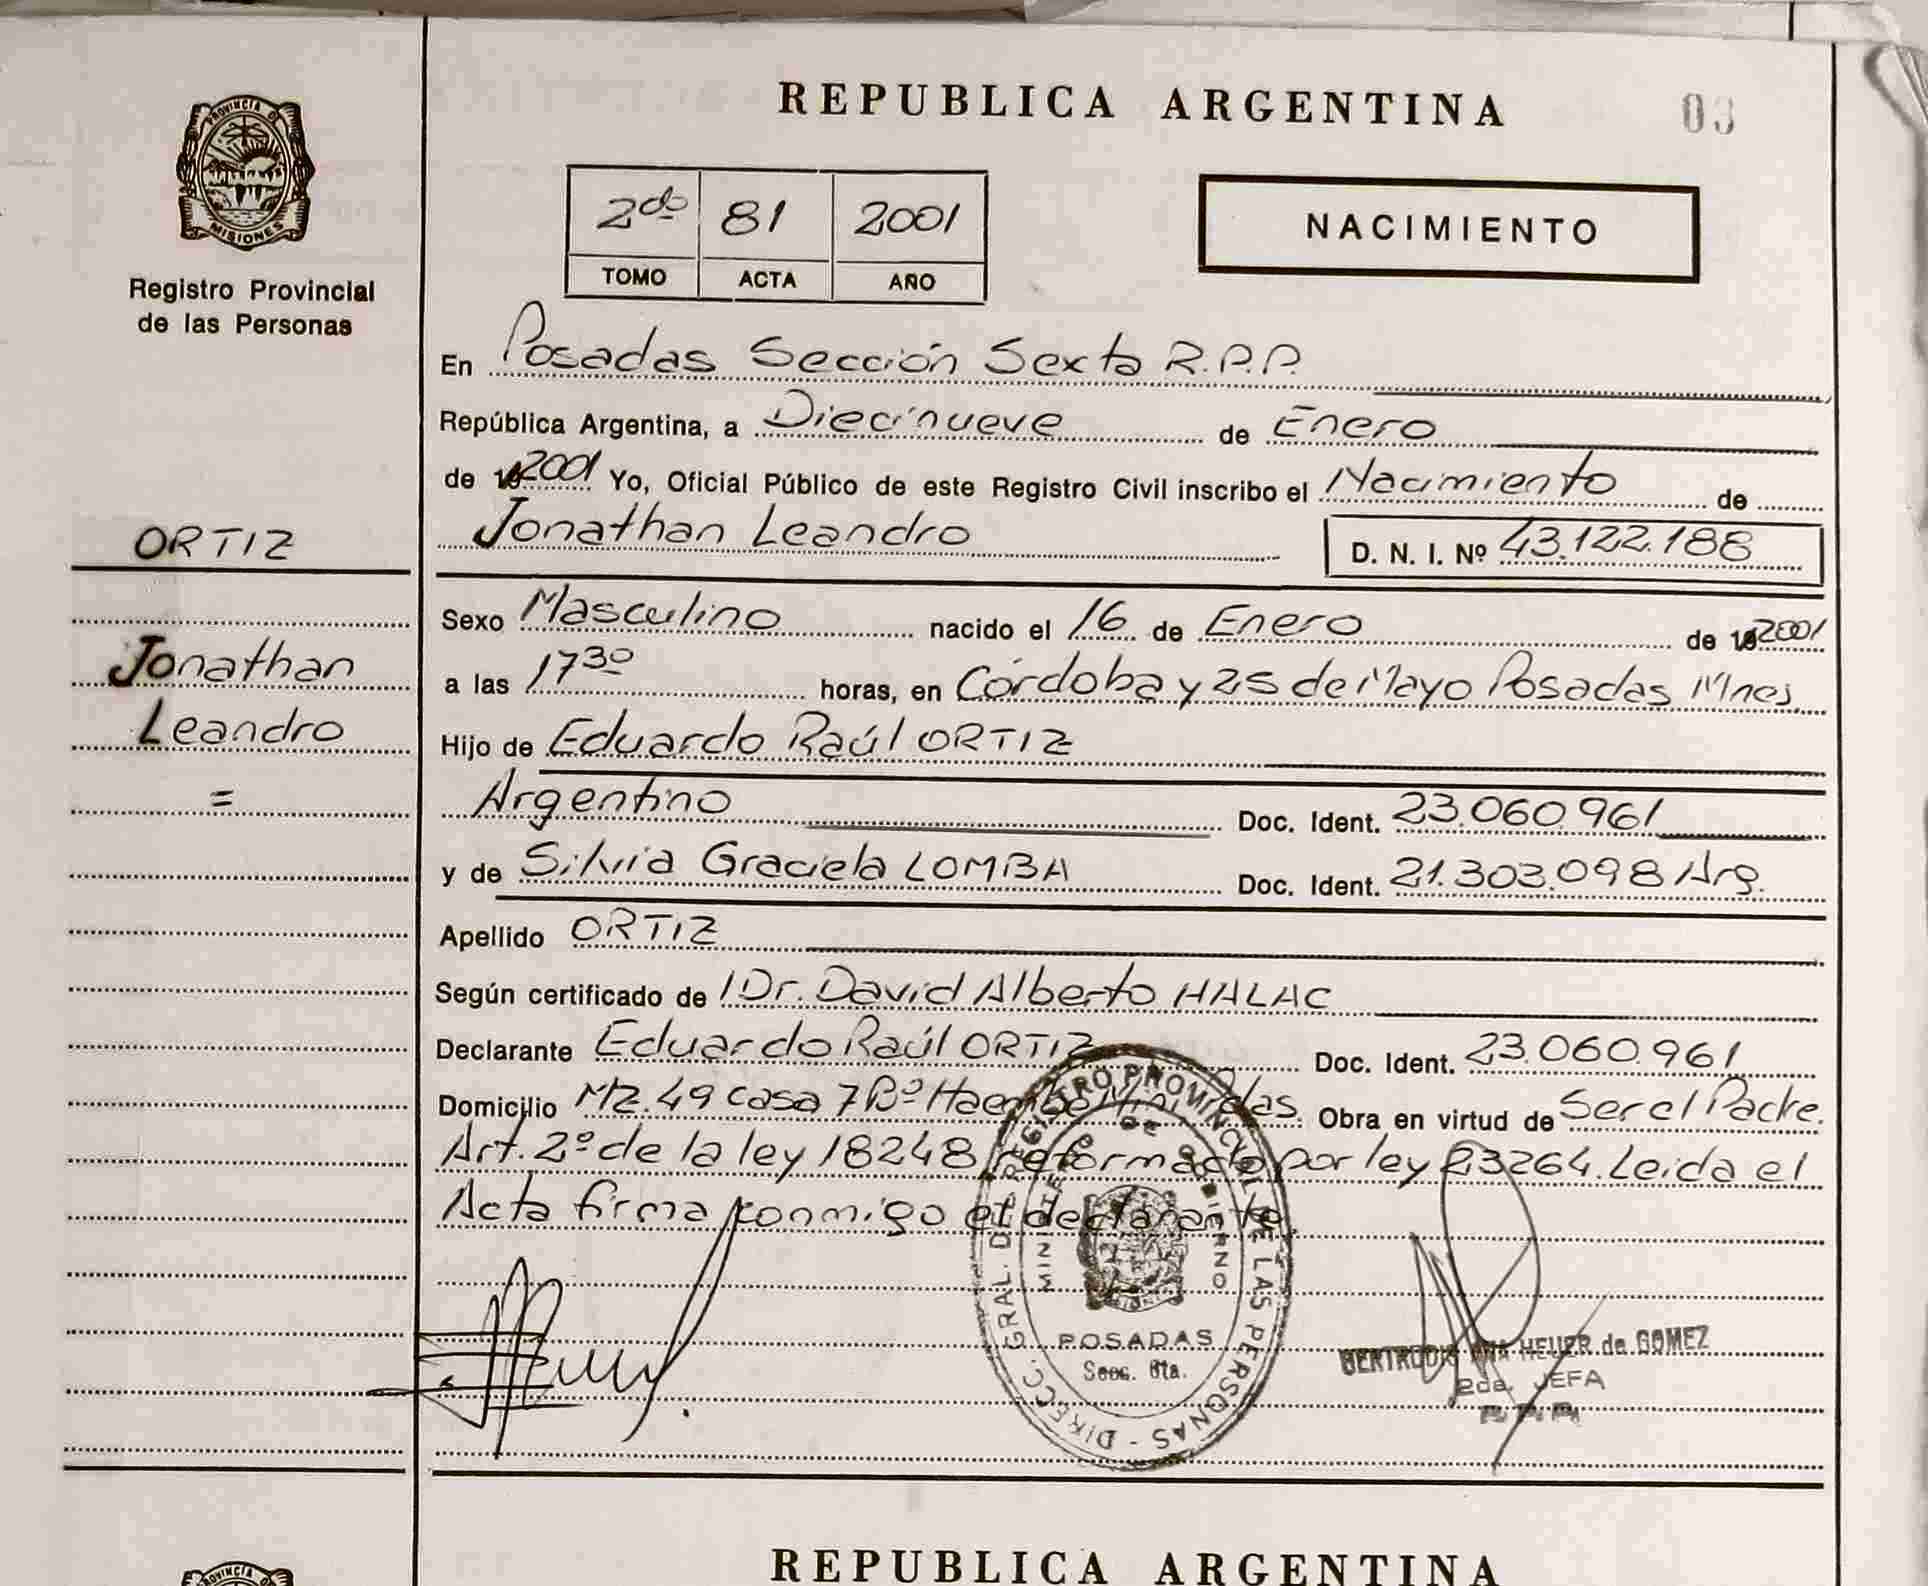 REPUBLICA ARGENTINA
03
PROVINCIA DE
MISIONES
Registro Provincial
de las Personas
2do 81 2001
TOMO ACTA AÑO
NACIMIENTO
En Posadas Sección Sexta R.P.P.
República Argentina, a Diecinueve de Enero
de 2001 Yo, Oficial Público de este Registro Civil inscribo el Nacimiento de
Jonathan Leandro D. N. I. Nº 43.122.188
ORTIZ
Jonathan
Leandro
=
Sexo Masculino nacido el 16 de Enero de 2001
a las 17³⁰ horas, en Córdoba y 25 de Mayo Posadas Mnes.
Hijo de Eduardo Raúl ORTIZ
Argentino Doc. Ident. 23.060.961
y de Silvia Graciela LOMBA Doc. Ident. 21.303.098 Arg.
Apellido ORTIZ
Según certificado de Dr. David Alberto HALAC
Declarante Eduardo Raúl ORTIZ Doc. Ident. 23.060.961
Domicilio Mz. 49 Casa 7 Bº Pdas. Obra en virtud de Ser el Padre.
Art. 2º de la ley 18248 reformado por ley 23264. Leida el
Acta firma conmigo el declarante.
DIRECC. GRAL. DEL REGISTRO PROVINCIAL DE LAS PERSONAS -
MINISTERIO DE GOBIERNO
POSADAS
Secc. 6ta.
GERTRUDIS ANA HEUER de GOMEZ
2da. JEFA
R.P.P.
REPUBLICA ARGENTINA
PROVINCIA DE